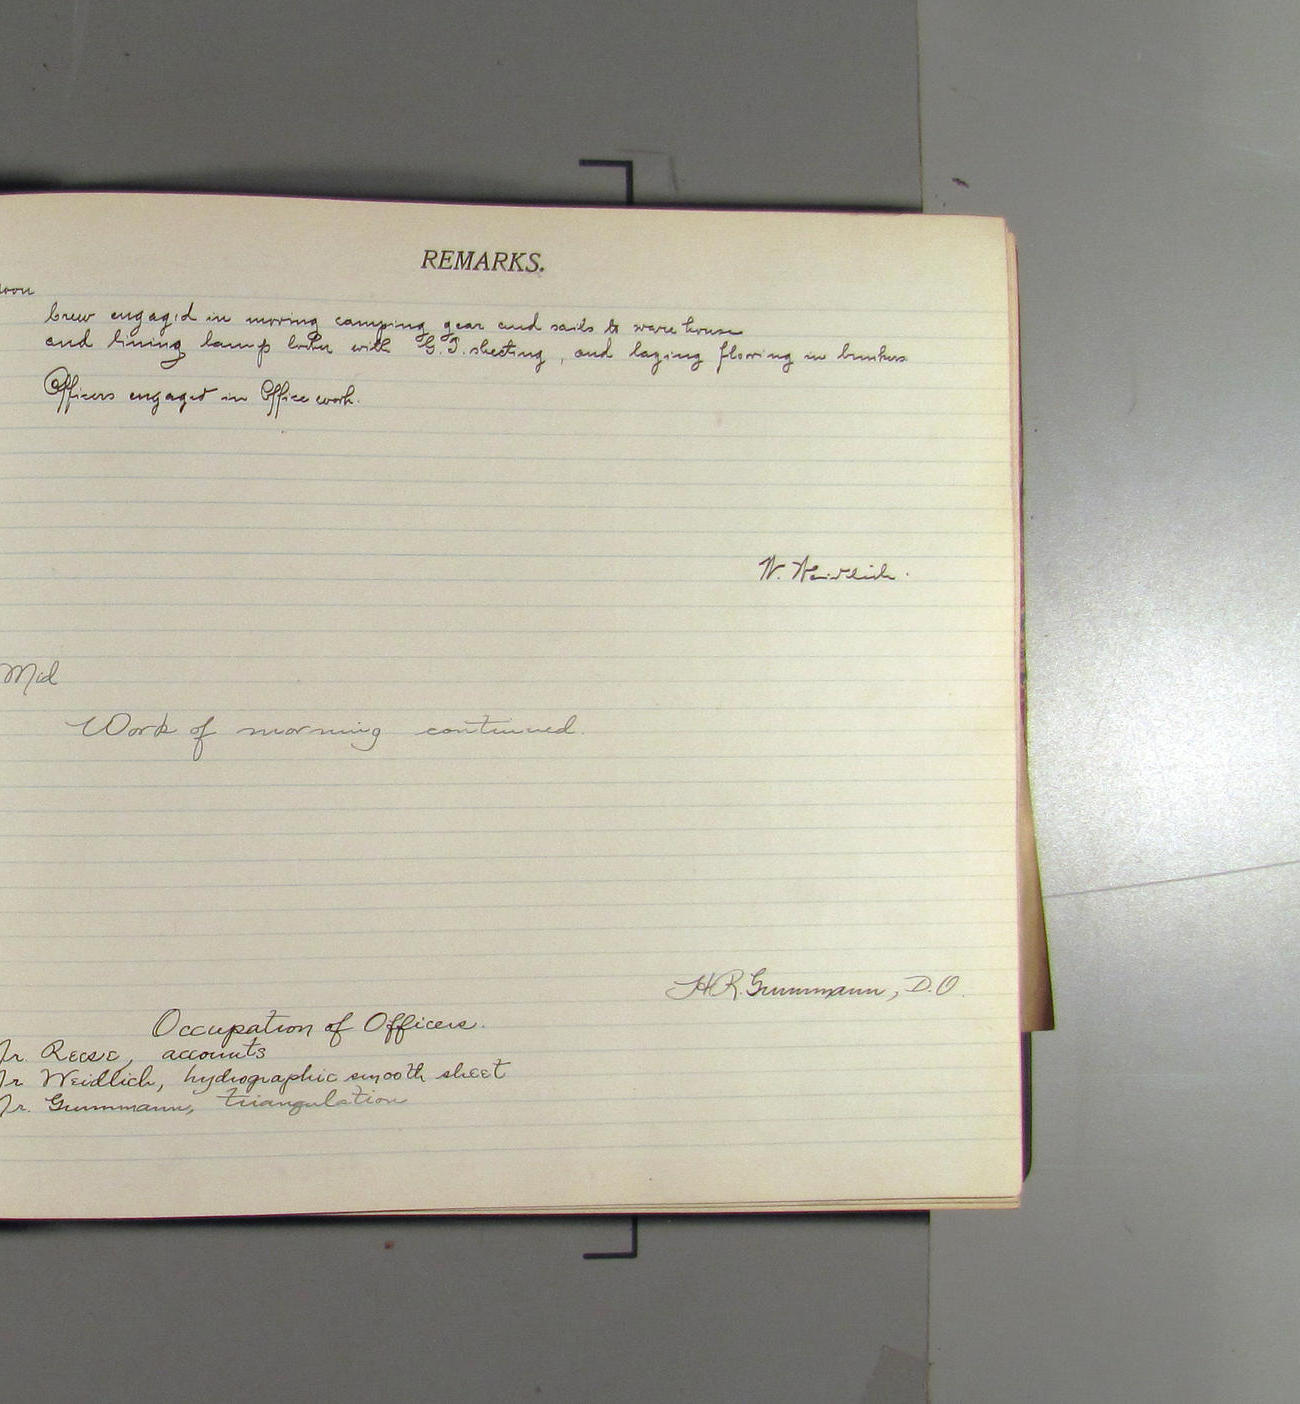 REMARKS.
oon
Crew engaged in moving camping gear and sails to ware house
and lining lamp locker with G.I. sheeting, and laying flooring in bunkers
Officers engaged in Office work.
W. Weidlich.
Mid
Work of morning continued.
H.R. Grummann, D.O.
Occupation of Officers.
Mr. Reese, accounts
Mr Weidlich, hydrographic smooth sheet
Mr. Grummann, triangulation